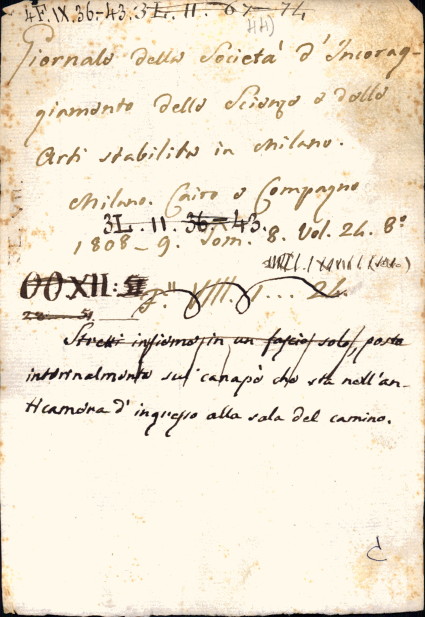 4F. IX. 36-43. 3L. II. 67-74
Giornale della Società d'Incorag-
giamento delle Scienze e delle
Arti stabilita in Milano.
Milano. Cairo e Compagno
3L. II. 36-43.
1808-9. Tom. 8. Vol. 24. 8º
OO XII:
VIII. I ... 24.
Stretti insieme in un fascio solo, posta
interinalmente sul canapè che sta nell'an-
ticamera d'ingresso alla sala del camino.